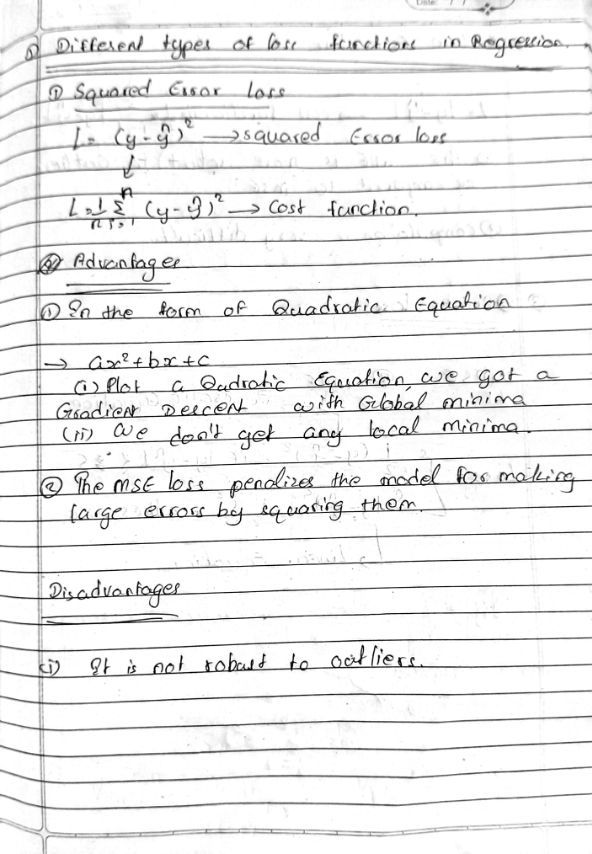 Date: / /
① Different types of loss functions in Regression.
① Squared Error loss
L = (y-ŷ)² → squared Error loss
↓
L = 1/n Σ (y-ŷ)² → Cost function.
n
i=1
② Advantages
① In the form of Quadratic Equation
→ ax²+bx+c
(i) Plot a Qudratic Equation, we got a
Gradient Descent with Global minima
(ii) We don't get any local minima.
② The MSE loss penalizes the model for making
large errors by squaring them.
Disadvantages
(i) It is not robust to outliers.